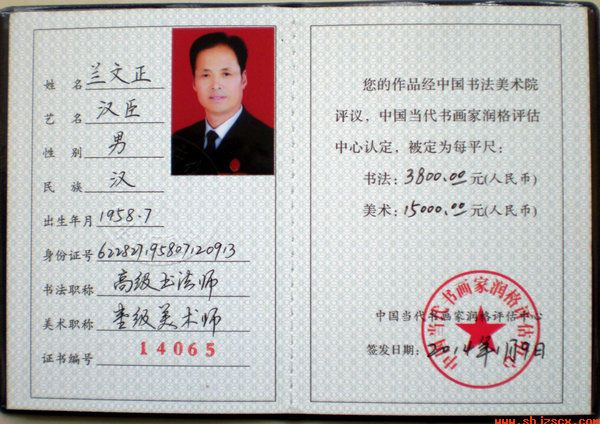 姓名 兰文正
艺名 汉臣
性别 男
民族 汉
出生年月 1958.7
身份证号 622827195807120913
书法职称 高级书法师
美术职称 壹级美术师
证书编号 14065
您的作品经中国书法美术院
评议，中国当代书画家润格评估
中心认定，被定为每平尺：
书法：3800.00元(人民币)
美术：15000.00元(人民币)
中国当代书画家润格评估中心
签发日期：2014年1月9日
中国当代书画家润格评估中心
www.shjzscx.com